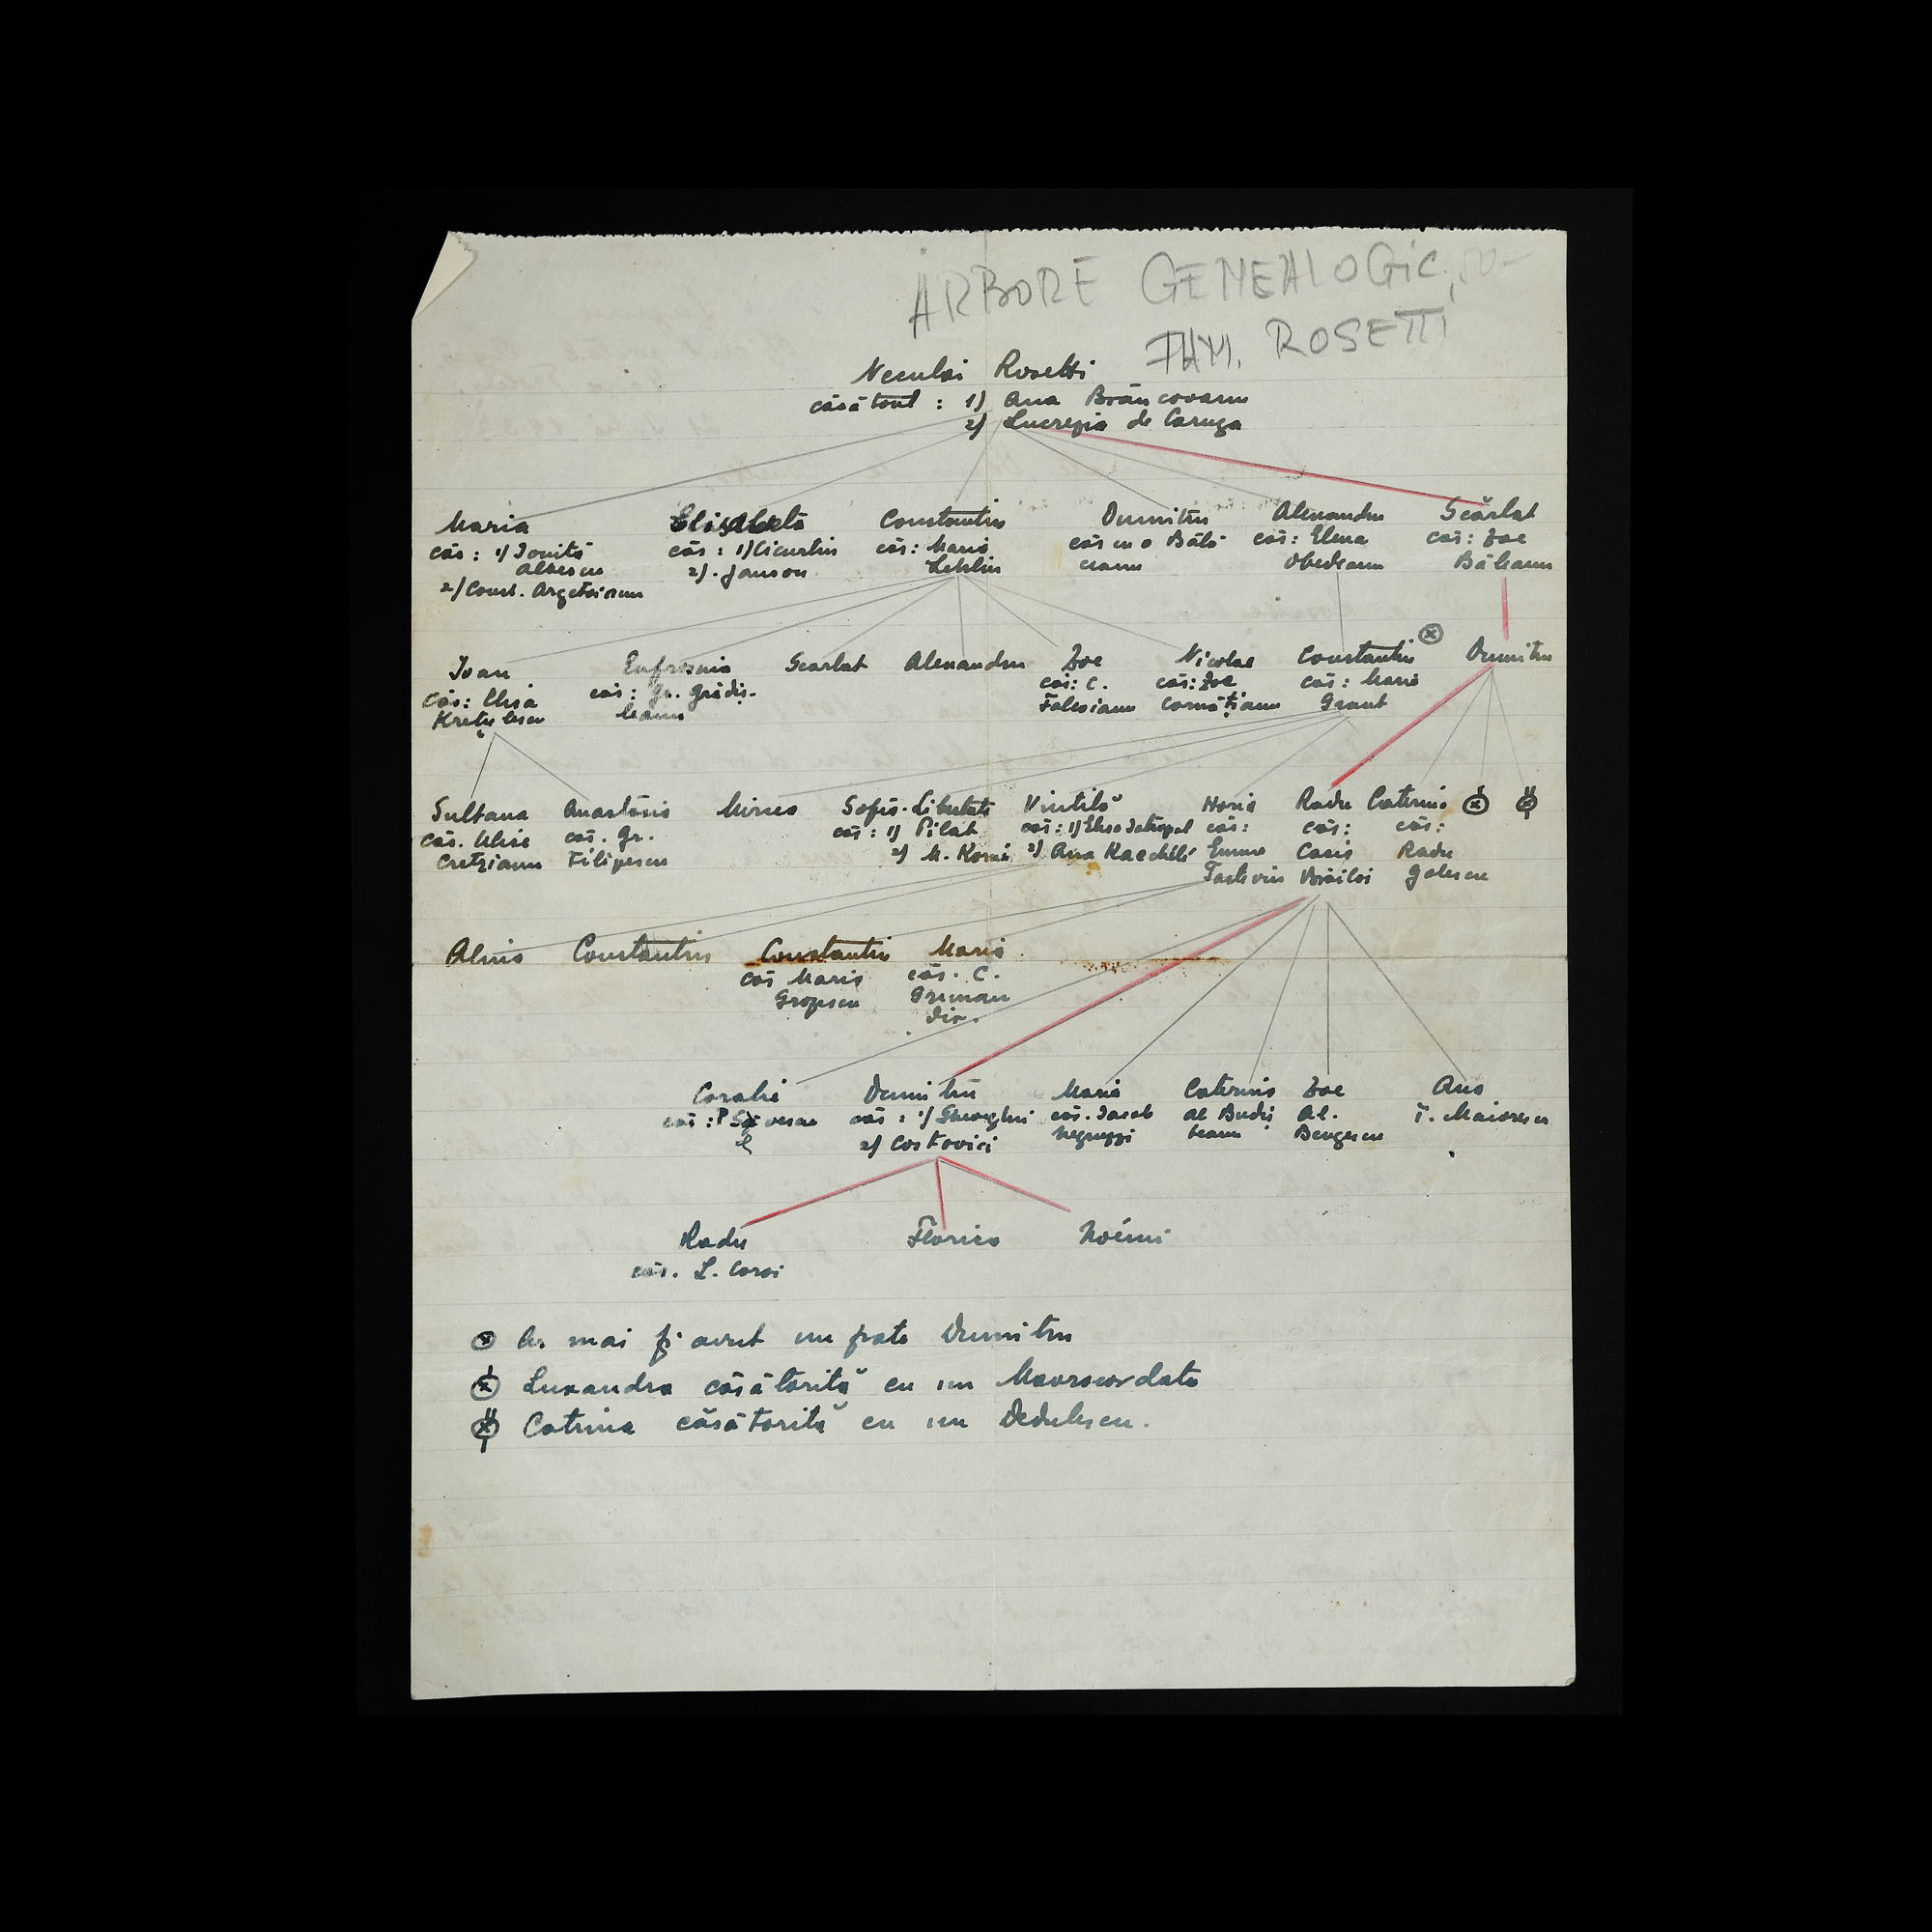 ARBORE GENEALOGIC
FAM. ROSETTI
Neculai Rosetti
căsătorit : 1) Ana Brâncoveanu
2) Lucreția de Caruga
Maria Elisabeta Constantin Dumitru Alexandru Scărlat
căs : 1) Ioniță căs : 1) Cicurtin căs : Maria căs cu o Bălă căs : Elena căs : Zoe
2) Janson Lehliu ceanu Obedeanu Băleanu
2) Const. Argetoianu
Ioan Eufrosina Scarlat Alexandru Zoe Nicolae Constantin Dumitru
căs : căs : Gr. Grădiș- căs : C. căs : Zoe căs : Maria
Krețulescu teanu Falcoianu Cornățianu Grant
Sultana Anastasia Mircea Sofia-Libertate Vintilă Horia Radu Caterina
căs. căs. Gr. căs : 1) Pilat căs : 1) căs : căs : căs :
Cretzianu Filipescu 2) M. 2) Ana Emma Radu
Brăiloi Golescu
Constantin Constantin Maria
căs Maria căs. C.
Coralie Dumitru Maria Caterina Zoe Ana
căs : P căs : 1) Gheorghiu căs. Iacob al Budiș Al. T. Maiorescu
2) Costovici Negruzzi teanu Bengescu
Radu Florica Noémi
căs. L. Coroi
Ar mai fi avut un frate Dumitru
Luxandra căsătorită cu un Mavrocordato
Catrina căsătorită cu un Dedulescu.